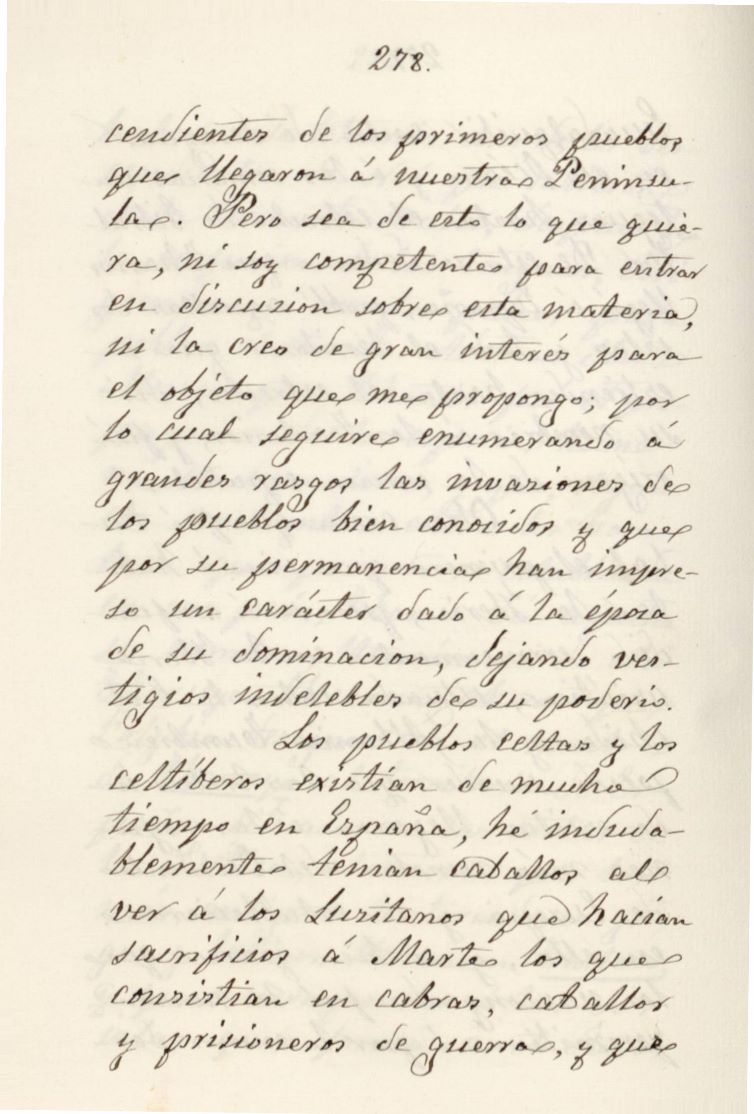 278.
cendientes de los primeros pueblos
que llegaron á nuestra Penínsu-
la. Pero sea de esto lo que quie-
ra, ni soy competente para entrar
en discusion sobre esta materia,
ni la creo de gran interés para
el objeto que me propongo; por
lo cual seguire enumerando á
grandes rasgos las invasiones de
los pueblos bien conocidos y que
por su permanencia han impre-
so un carácter dado á la época
de su dominacion, dejando ves-
tigios indelebles de su poderio.
Los pueblos celtas y los
celtíberos existían de mucho
tiempo en España, hé induda-
blemente tenian caballos al
ver á los Lusitanos que hacian
sacrificios á Marte los que
consistian en cabras, caballos
y prisioneros de guerra, y que